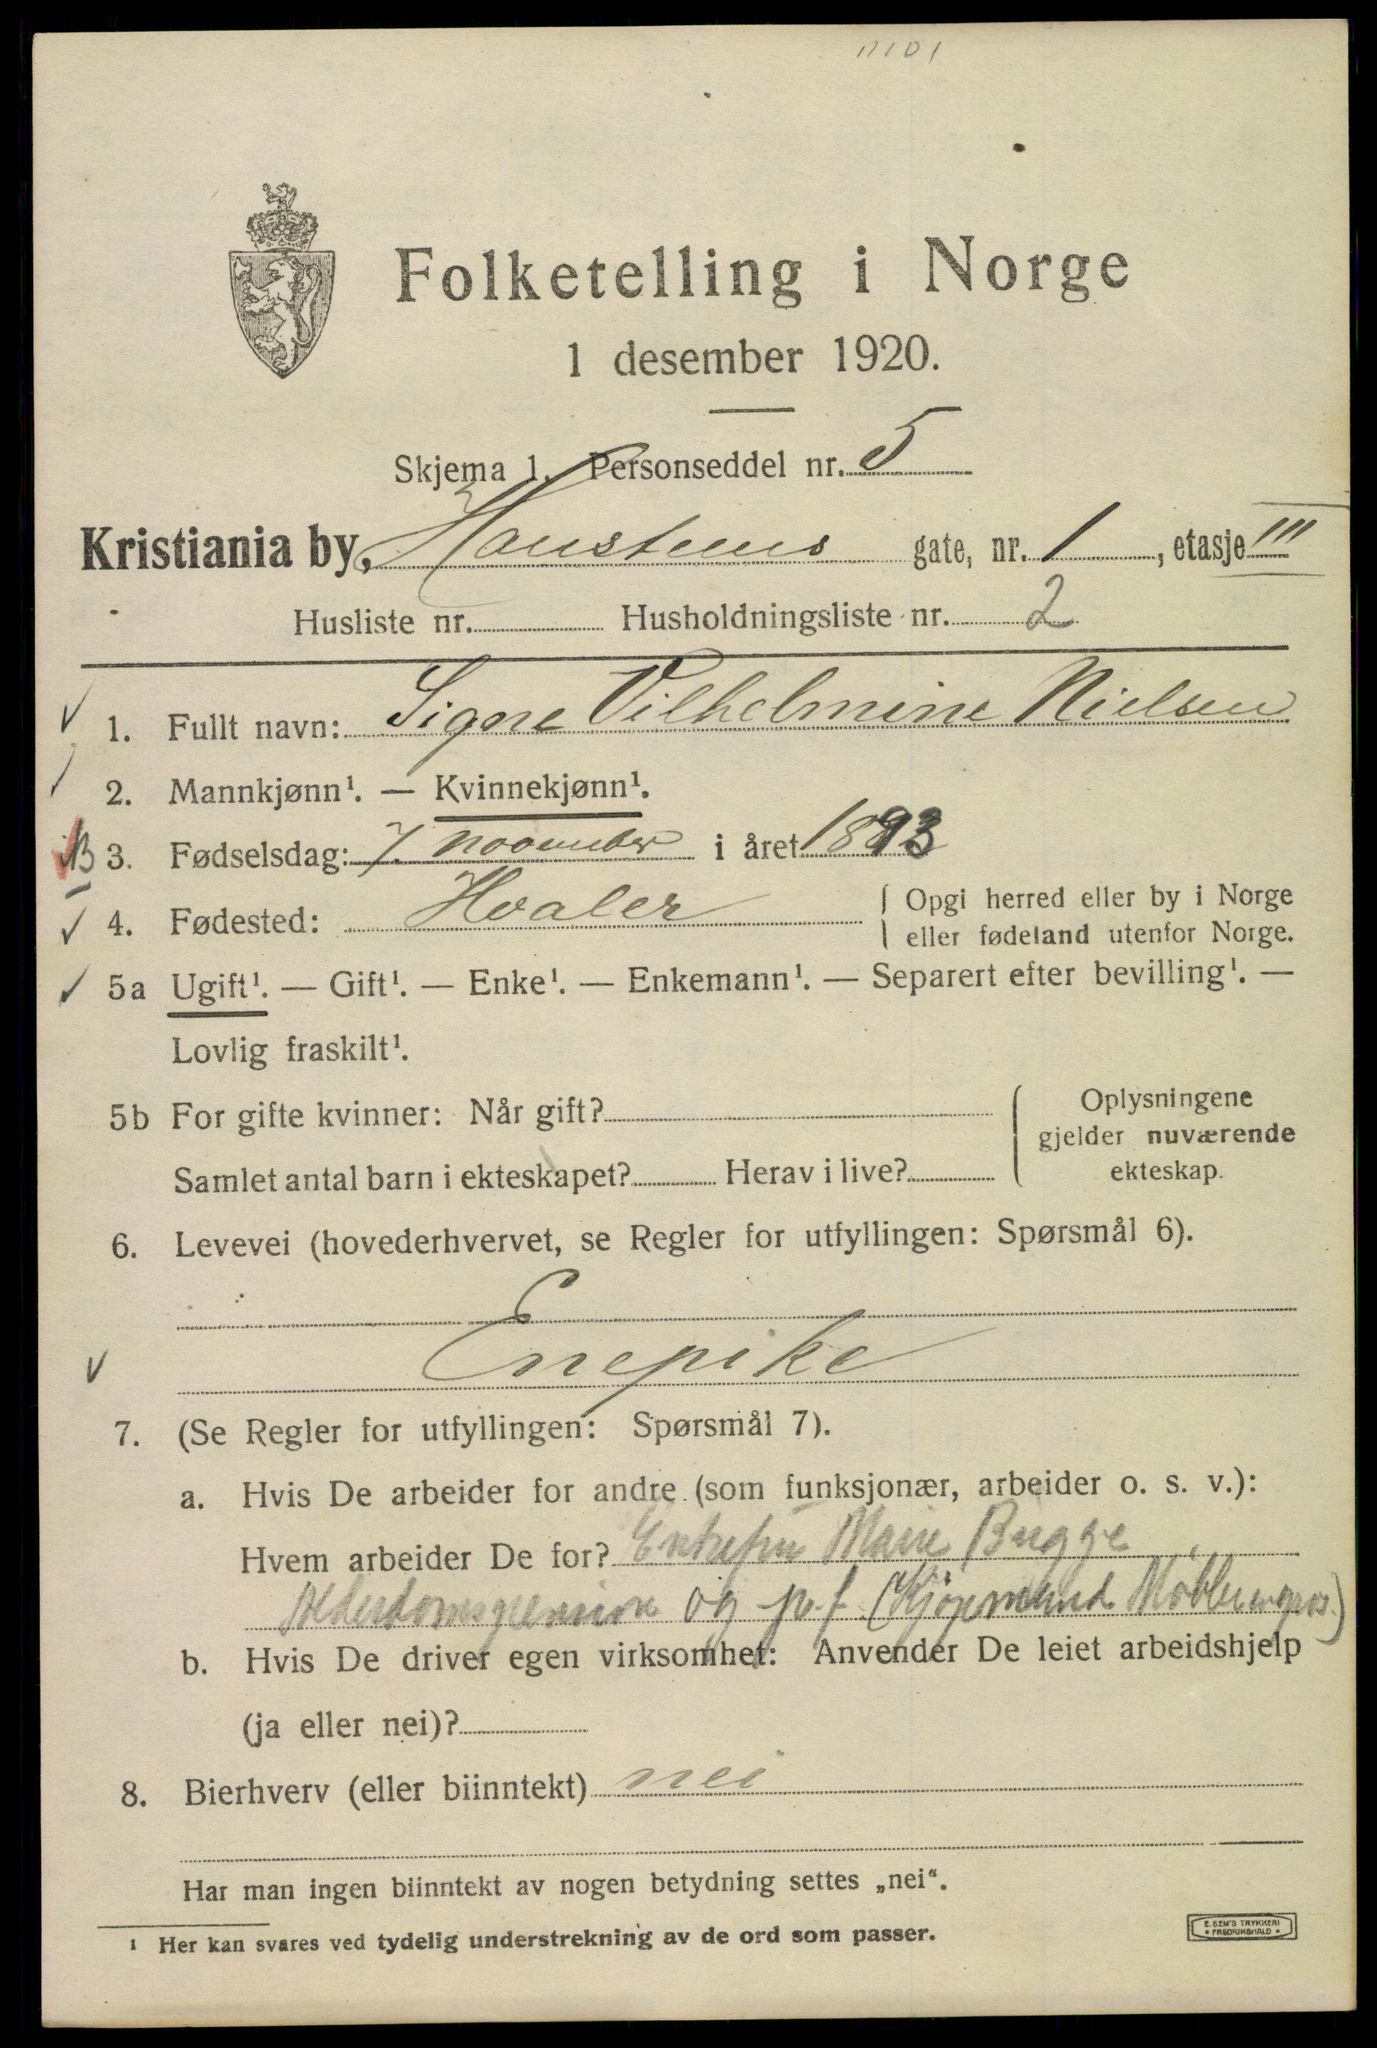 Folketelling i Norge
1 desember 1920.
Skjema 1. Personseddel nr. 5
Kristiania by, Hansteens gate, nr. 1, etasje III
Husliste nr. Husholdningsliste nr. 2
1. Fullt navn: Signe Vilhelmine Nielsen
2. Mannkjønn¹. — Kvinnekjønn¹.
3. Fødselsdag: 7. november i året 1893
4. Fødested: Hvaler { Opgi herred eller by i Norge
eller fødeland utenfor Norge.
5a Ugift¹. — Gift¹. — Enke¹. — Enkemann¹. — Separert efter bevilling¹. —
Lovlig fraskilt¹.
5b For gifte kvinner: Når gift? { Oplysningene
gjelder nuværende
Samlet antal barn i ekteskapet? Herav i live? ekteskap.
6. Levevei (hovederhvervet, se Regler for utfyllingen: Spørsmål 6).
Enepike
7. (Se Regler for utfyllingen: Spørsmål 7).
a. Hvis De arbeider for andre (som funksjonær, arbeider o. s. v.):
Hvem arbeider De for? Enkefru Marie Bugge
og p. f. (Kjøpmand
b. Hvis De driver egen virksomhet: Anvender De leiet arbeidshjelp
(ja eller nei)?
8. Bierhverv (eller biinntekt) nei
Har man ingen biinntekt av nogen betydning settes „nei“.
¹ Her kan svares ved tydelig understrekning av de ord som passer.
E. SEM'S TRYKKERI
* FREDRIKSHALD *